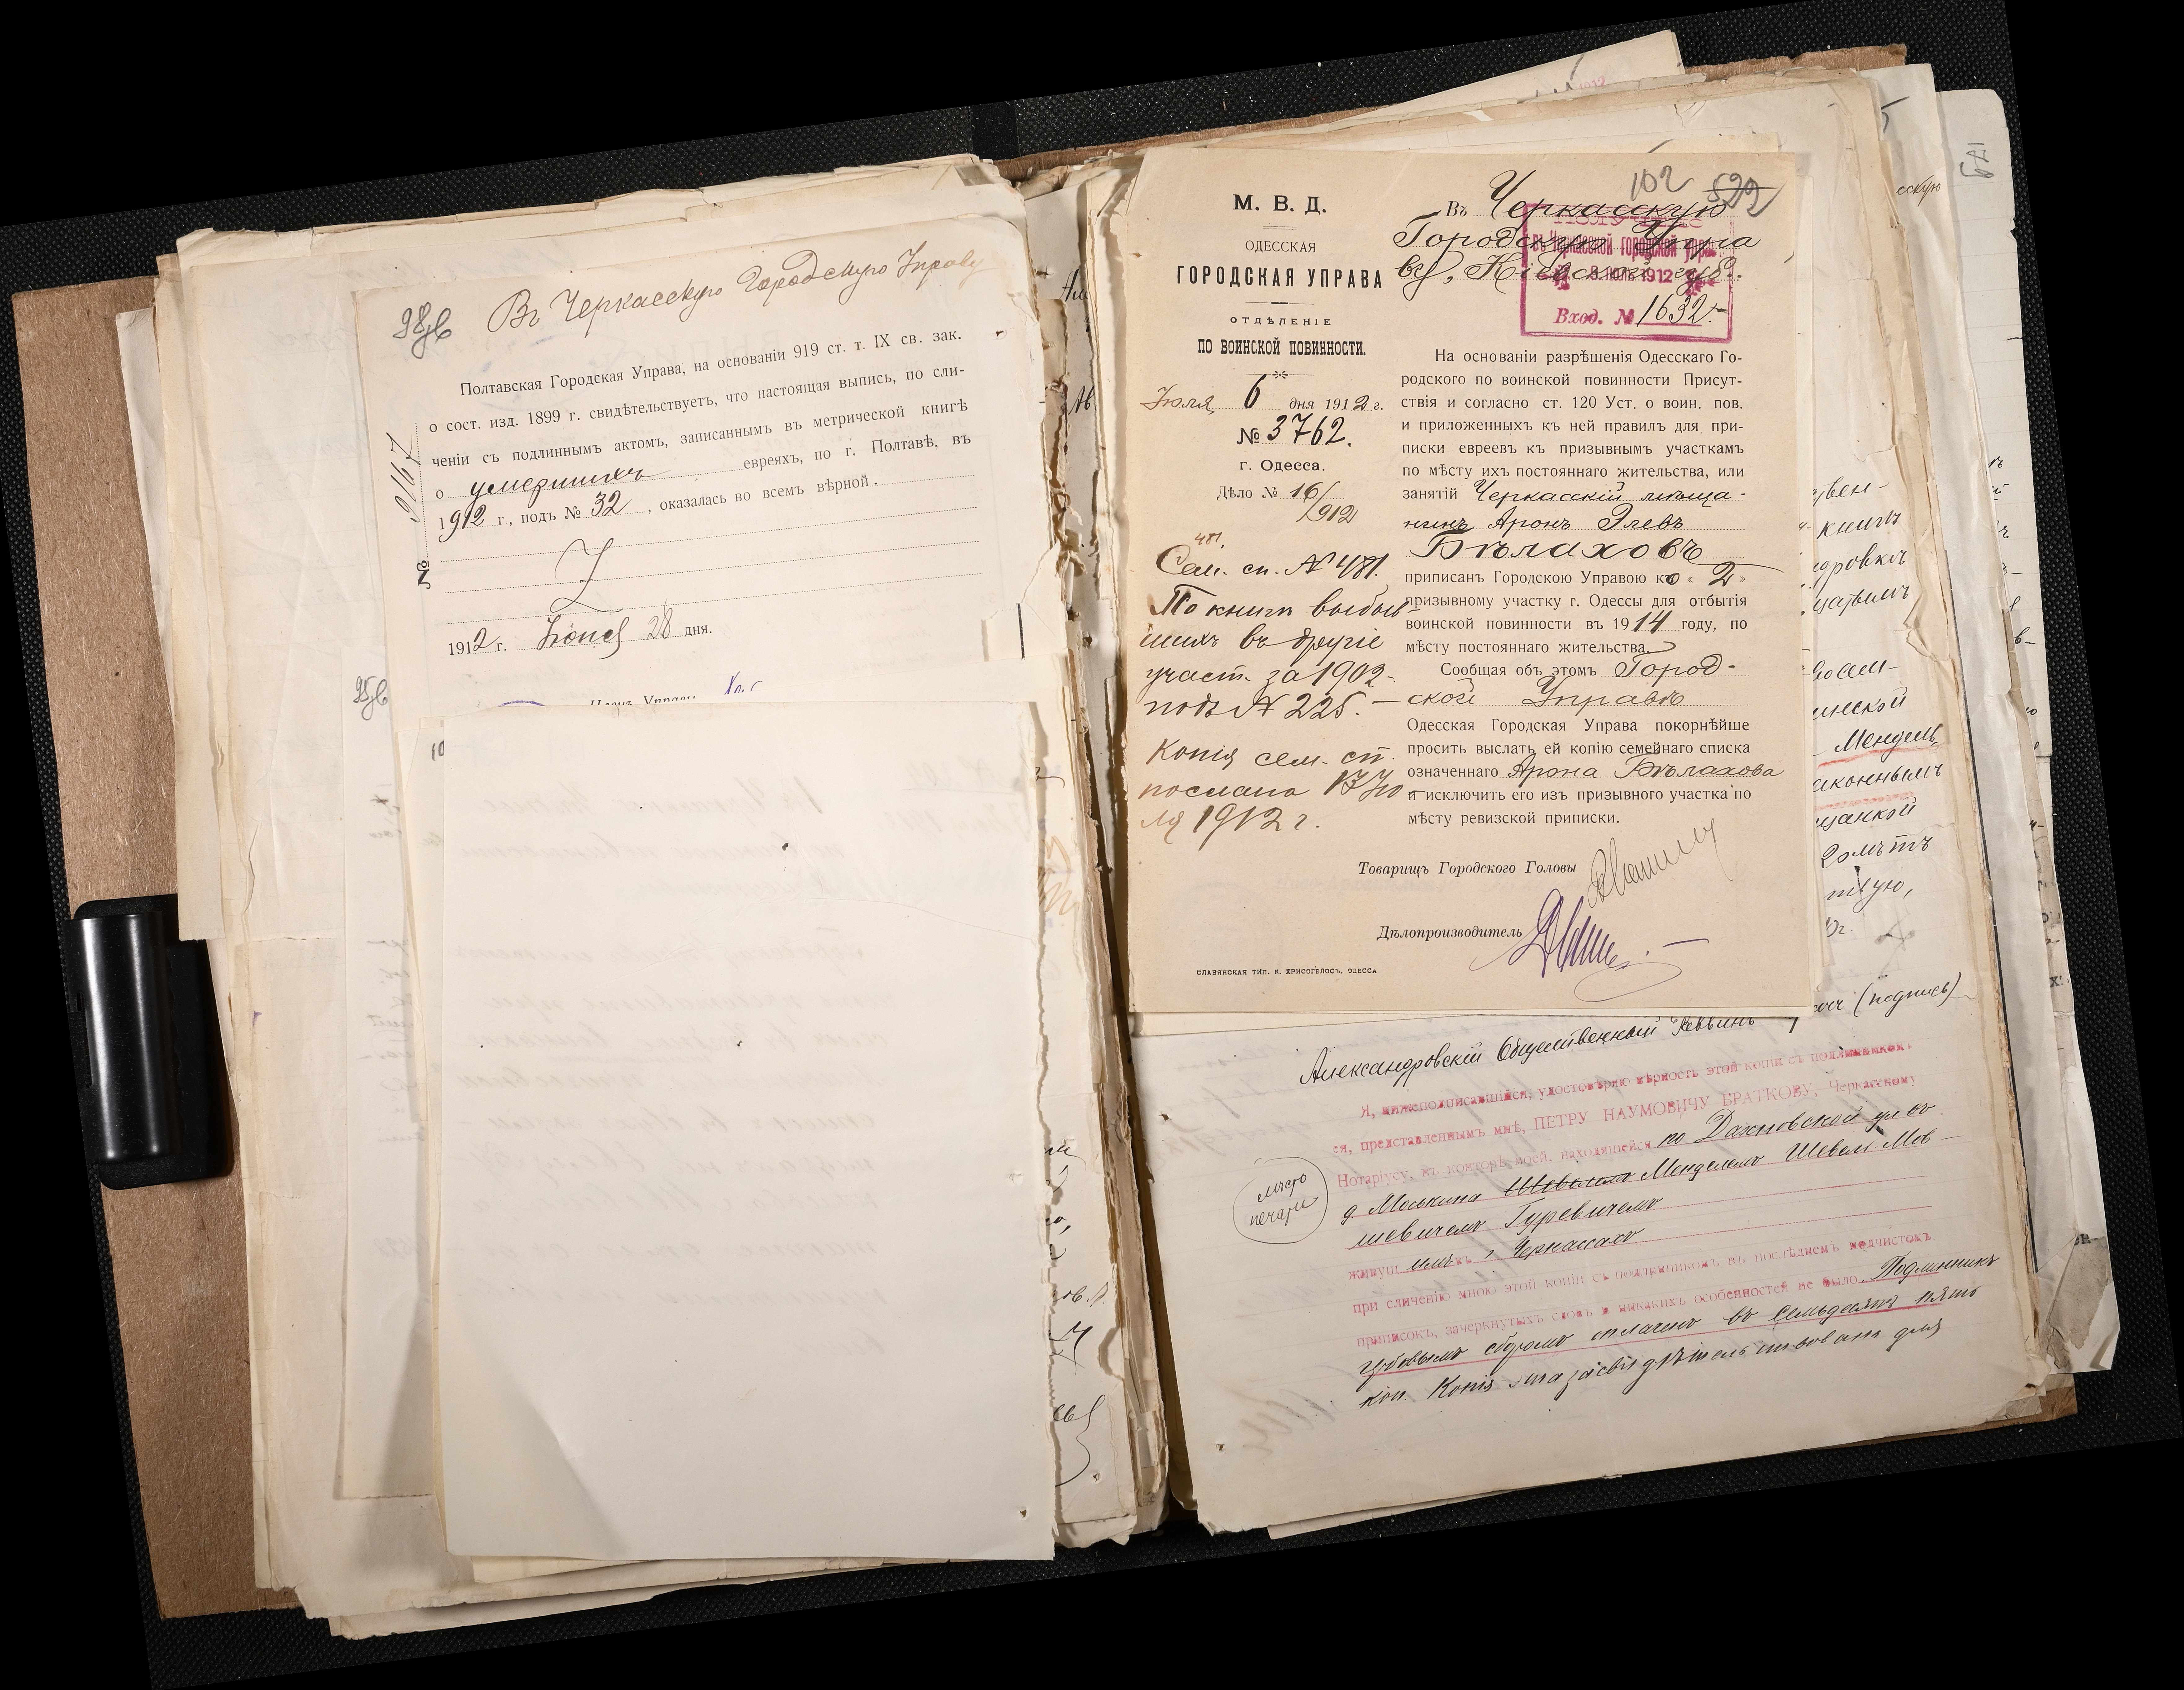 98об
Въ Черкасскую Городскую Управу
Полтавская Городская Управа, на основаніи 919 ст. т. IX св. зак.
о сост. изд. 1899 г. свидѣтельствуетъ, что настоящая выпись, по сли-
ченіи съ подлиннымъ актомъ, записаннымъ въ метрической книгѣ
о умершихъ евреяхъ, по г. Полтавѣ, въ
1912 г., подъ № 32, оказалась во всемъ вѣрной.
№ 9167
1912 г. Іюня 28 дня.
Членъ Управы
95об
10
М. В. Д.
ОДЕССКАЯ
ГОРОДСКАЯ УПРАВА
ОТДѢЛЕНІЕ
ПО ВОИНСКОЙ ПОВИННОСТИ.
Іюля 6 дня 1912 г.
№ 3762.
г. Одесса.
Дѣло № 16/
912
481.
Сем. сп. № 481.
По книгѣ выбыв
шихъ въ другіе
участ. за 1902-
подъ № 225. —
Копія сем. сп.
послана 17 Ію
ля 1912 г.
102
529
Въ Черкасскую
Городскую Упра
ву, Кіевской губ.
въ Черкасской городской упр.
8 ІЮЛ 1912
Вход. № 1632.-
На основаніи разрѣшенія Одесскаго Го-
родского по воинской повинности Присут-
ствія и согласно ст. 120 Уст. о воин. пов.
и приложенныхъ къ ней правилъ для при-
писки евреевъ къ призывнымъ участкамъ
по мѣсту ихъ постояннаго жительства, или
занятій Черкасскій мѣща-
нинъ Аронъ Элевъ
Бѣлаховъ
приписанъ Городскою Управою ко « 2 »
призывному участку г. Одессы для отбытія
воинской повинности въ 1914 году, по
мѣсту постояннаго жительства.
Сообщая объ этомъ Город-
ской Управѣ
Одесская Городская Управа покорнѣйше
проситъ выслать ей копію семейнаго списка
означеннаго Арона Бѣлахова
и исключить его изъ призывного участка по
мѣсту ревизской приписки.
Товарищъ Городского Головы
Дѣлопроизводитель
СЛАВЯНСКАЯ ТИП. Я. ХРИСОГЕЛОСЪ, ОДЕССА
Александровскій Общественный Раввинъ (подпись)
Я, нижеподписавшійся, удостовѣряю вѣрность этой копіи съ подлинникомъ
ея, представленнымъ мнѣ, ПЕТРУ НАУМОВИЧУ БРАТКОВУ, Черкасскому
Нотаріусу, въ конторѣ моей, находящейся по Дахновской ул въ
д Моськина Шевелемъ Менделемъ Шевель-Мов-
шевичемъ Гуревичемъ
живущимъ въ г Черкассахъ
при сличеніи мною этой копіи съ подлинникомъ въ послѣднемъ подчистокъ
приписокъ, зачеркнутыхъ словъ и никакихъ особенностей не было. Подлинникъ
гербовымъ сборомъ оплаченъ въ семьдесятъ пять
коп. Копія эта засвидѣтельствована для
мѣсто
печати
ской
Мендель
законнымъ
щанкой